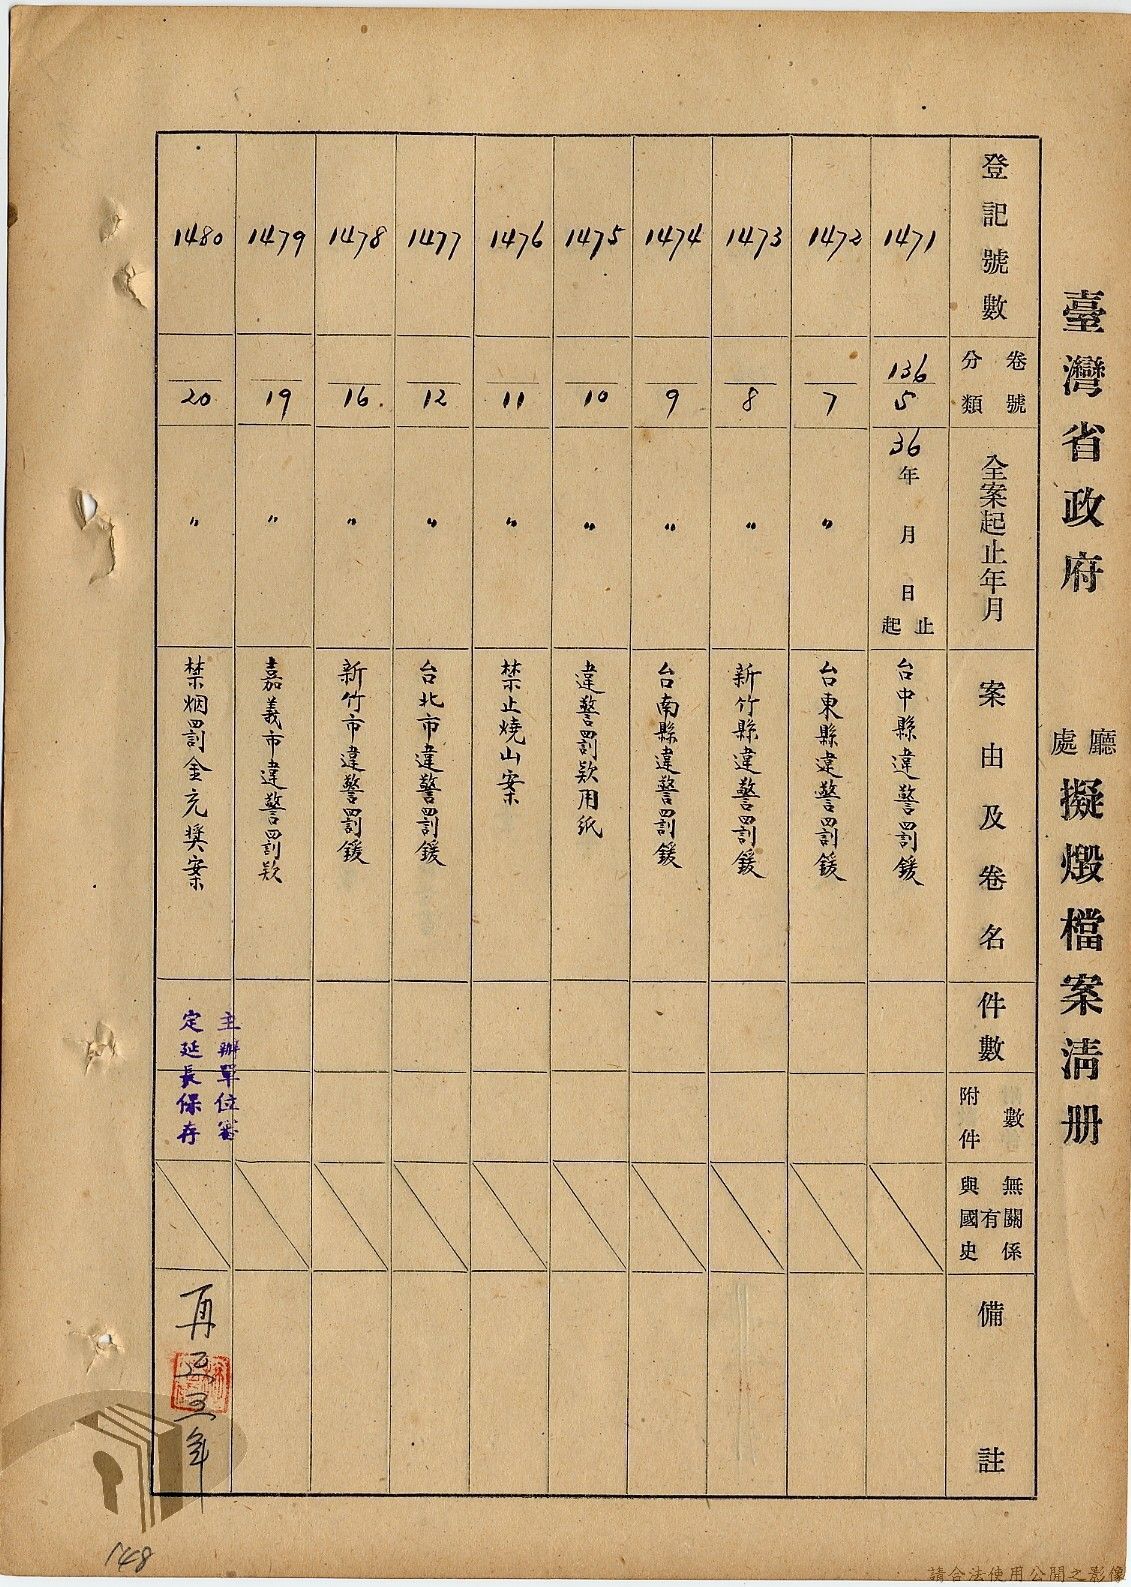 臺灣省政府 廳處 擬燬檔案清册
登記號數
卷號 分類
全案起止年月
案由及卷名
件數
附件數
與國史有無關係
備註
1471 136/5 36年 月 日 起止 台中縣違警罰鍰
1472 7 〃 台東縣違警罰鍰
1473 8 〃 新竹縣違警罰鍰
1474 9 〃 台南縣違警罰鍰
1475 10 〃 違警罰欵用紙
1476 11 〃 禁止燒山案
1477 12 〃 台北市違警罰鍰
1478 16 〃 新竹市違警罰鍰
1479 19 〃 嘉義市違警罰欵
1480 20 〃 禁烟罰金充奬案
主辦單位審
定延長保存
再延三年
148
請合法使用公開之影像